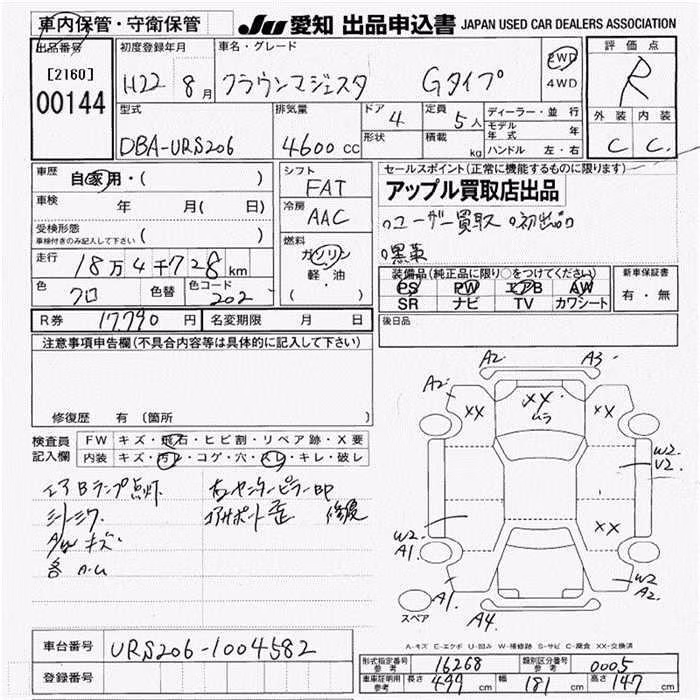 車内保管・守衛保管
JU 愛知 出品申込書 JAPAN USED CAR DEALERS ASSOCIATION
出品番号
[2160]
00144
初度登録年月
H22 8月
車名・グレード
クラウンマジェスタ Gタイプ
2WD
4WD
評価点
R
外装 内装
C C
型式
DBA-URS206
排気量
4600cc
ドア 4
形状
定員 5人
積載 kg
ディーラー・並行
モデル年式 年
ハンドル 左・右
車歴 自家用・( )
車検 年 月( 日)
受検形態
車検付きのみ記入して下さい ( )
走行 18万4千728km
色 クロ 色替 色コード 202
シフト
FAT
冷房
AAC
燃料
ガソリン
軽・油
( )
セールスポイント(正常に機能するものに限ります)
アップル買取店出品
○ユーザー買取 ○初出品
○黒革
装備品(純正品に限り○をつけてください)
PS PW エアB AW
SR ナビ TV カワシート
新車保証書
有・無
R券 17790円 名変期限 月 日
後日品
注意事項申告欄(不具合内容等は具体的に記入して下さい)
修復歴 有 〔箇所
検査員記入欄
FW キズ・飛石・ヒビ割・リペア跡・X要
内装 キズ・汚レ・コゲ・穴・スレ・キレ・破レ
エアBランプ点灯
シートシワ
A/Wキズ
各A.U
右センターピラー凹
コアサポート歪 修復
A2 A3
A2
XX XX XX
ムラ
W2
U2
XX
W2
A1
A1
A4
W2
A2
スペア
A-キズ E-エクボ U-凹み W-補修跡 S-サビ C-腐食 XX-交換済
車台番号 URS206-1004582
登録番号
形式指定番号参考 16268 類別区分番号参考 0005
車庫証明用参考 長さ 499cm 幅 181cm 高さ 147cm